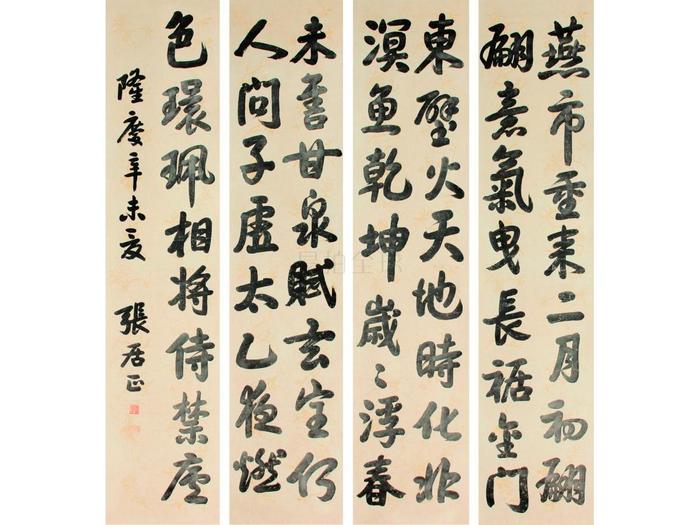 燕市重來二月初翩
翩意氣曳長裾金門
東壁火天地時化北
溟魚乾坤歲〻浮春
未售甘泉賦玄室何
人問子虛太乙夜燃
色環珮相將侍禁廬
隆慶辛未夏 張居正